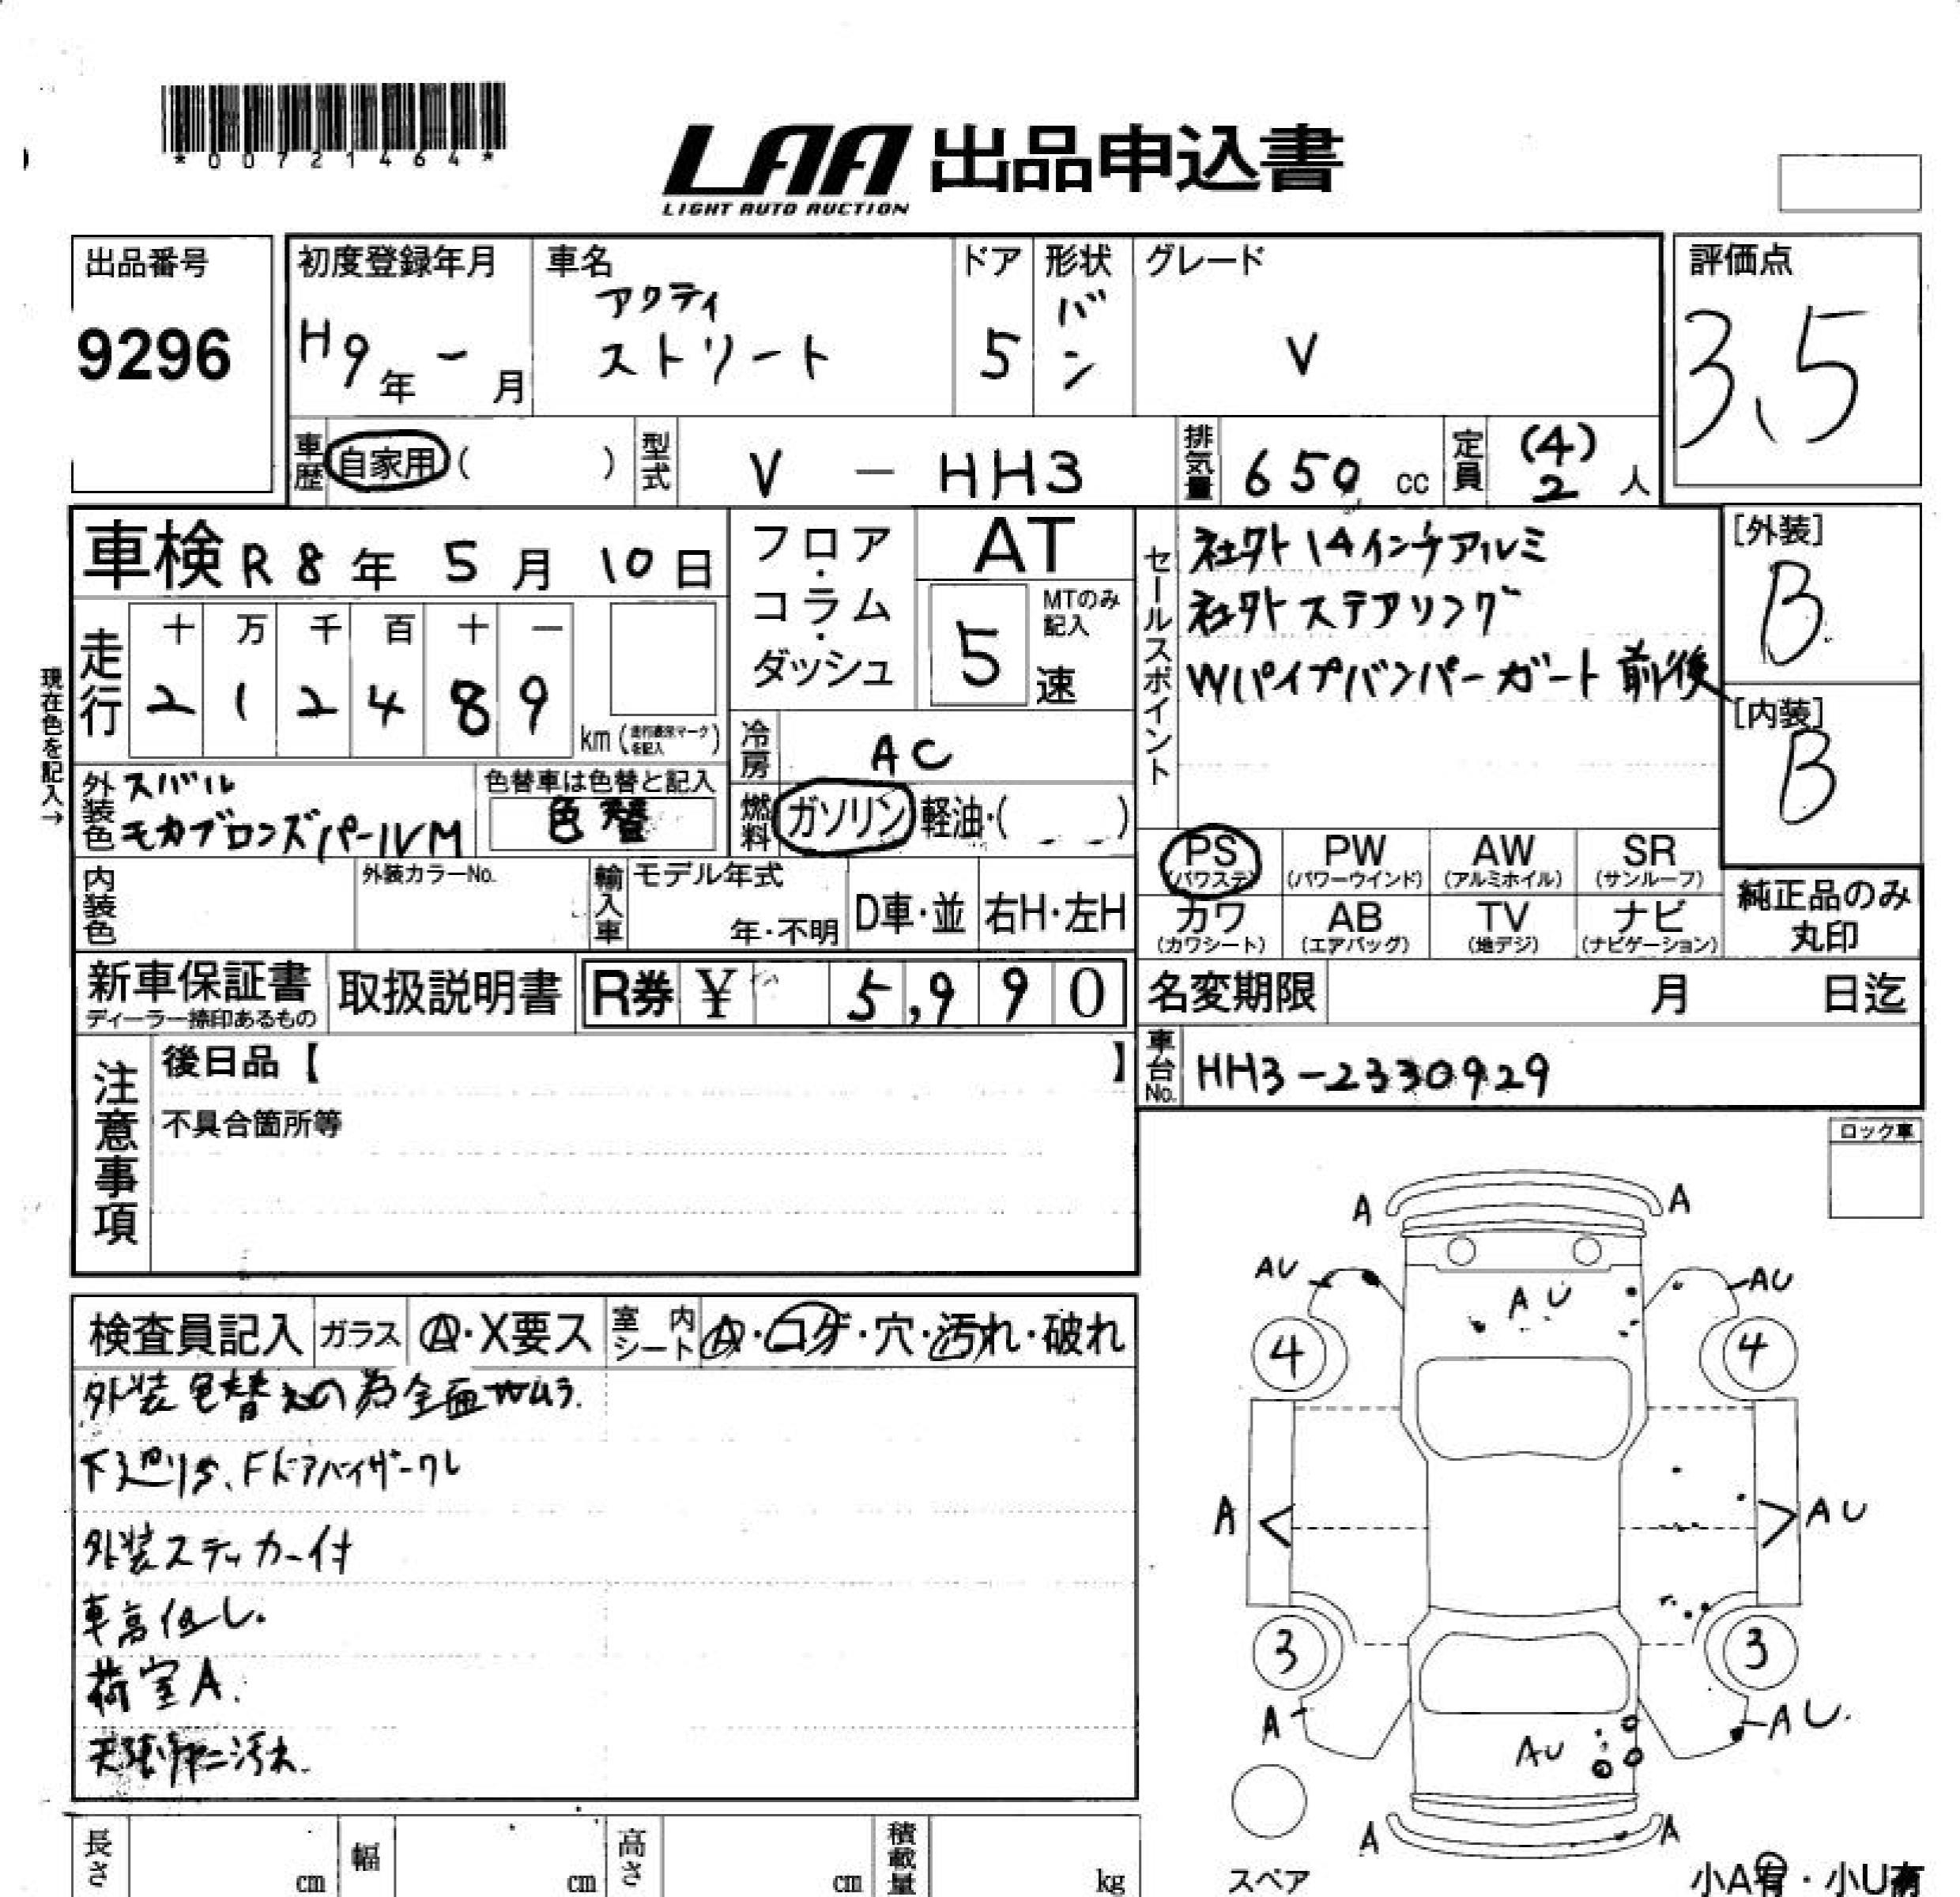 *00721464*
LAA 出品申込書
LIGHT AUTO AUCTION
出品番号
9296
初度登録年月
H9年 - 月
車名
アクティ
ストリート
ドア
5
形状
バン
グレード
V
評価点
3.5
車歴 自家用 ( )
型式 V - HH3
排気量 650 cc
定員 (4)
2 人
車検 R8年 5月 10日
フロア・コラム・ダッシュ
AT
5 速
MTのみ記入
セールスポイント
社外14インチアルミ
社外ステアリング
Wパイプバンパーガード 前後
[外装]
B
[内装]
B
現在色を記入→
走行
十 万 千 百 十 一
2 1 2 4 8 9
km
冷房 AC
外装色 スバル
モカブロンズパールVM
色替車は色替と記入
色替
燃料 ガソリン・軽油・( )
PS (パワステ)
PW (パワーウインド)
AW (アルミホイル)
SR (サンルーフ)
カワ (カワシート)
AB (エアバッグ)
TV (地デジ)
ナビ (ナビゲーション)
純正品のみ
丸印
内装色
外装カラーNo.
輸入車
モデル年式
年・不明
D車・並
右H・左H
新車保証書
ディーラー捺印あるもの
取扱説明書
R券 ¥ 5,990
名変期限 月 日迄
車台No. HH3-2330929
注意事項
後日品【 】
不具合箇所等
ロック車
検査員記入
ガラス A・X要ス
室内シート A・コゲ・穴・汚れ・破れ
外装色替えの為全面カムラ.
下廻りS、Fドアバイザーワレ
外装ステッカー付
車高低し.
荷室A.
汚れ.
A A
AU AU AU
4 4
A AU
3 3
A AU AU.
A A
スペア
小A有・小U有
長さ cm
幅 cm
高さ cm
積載量 kg